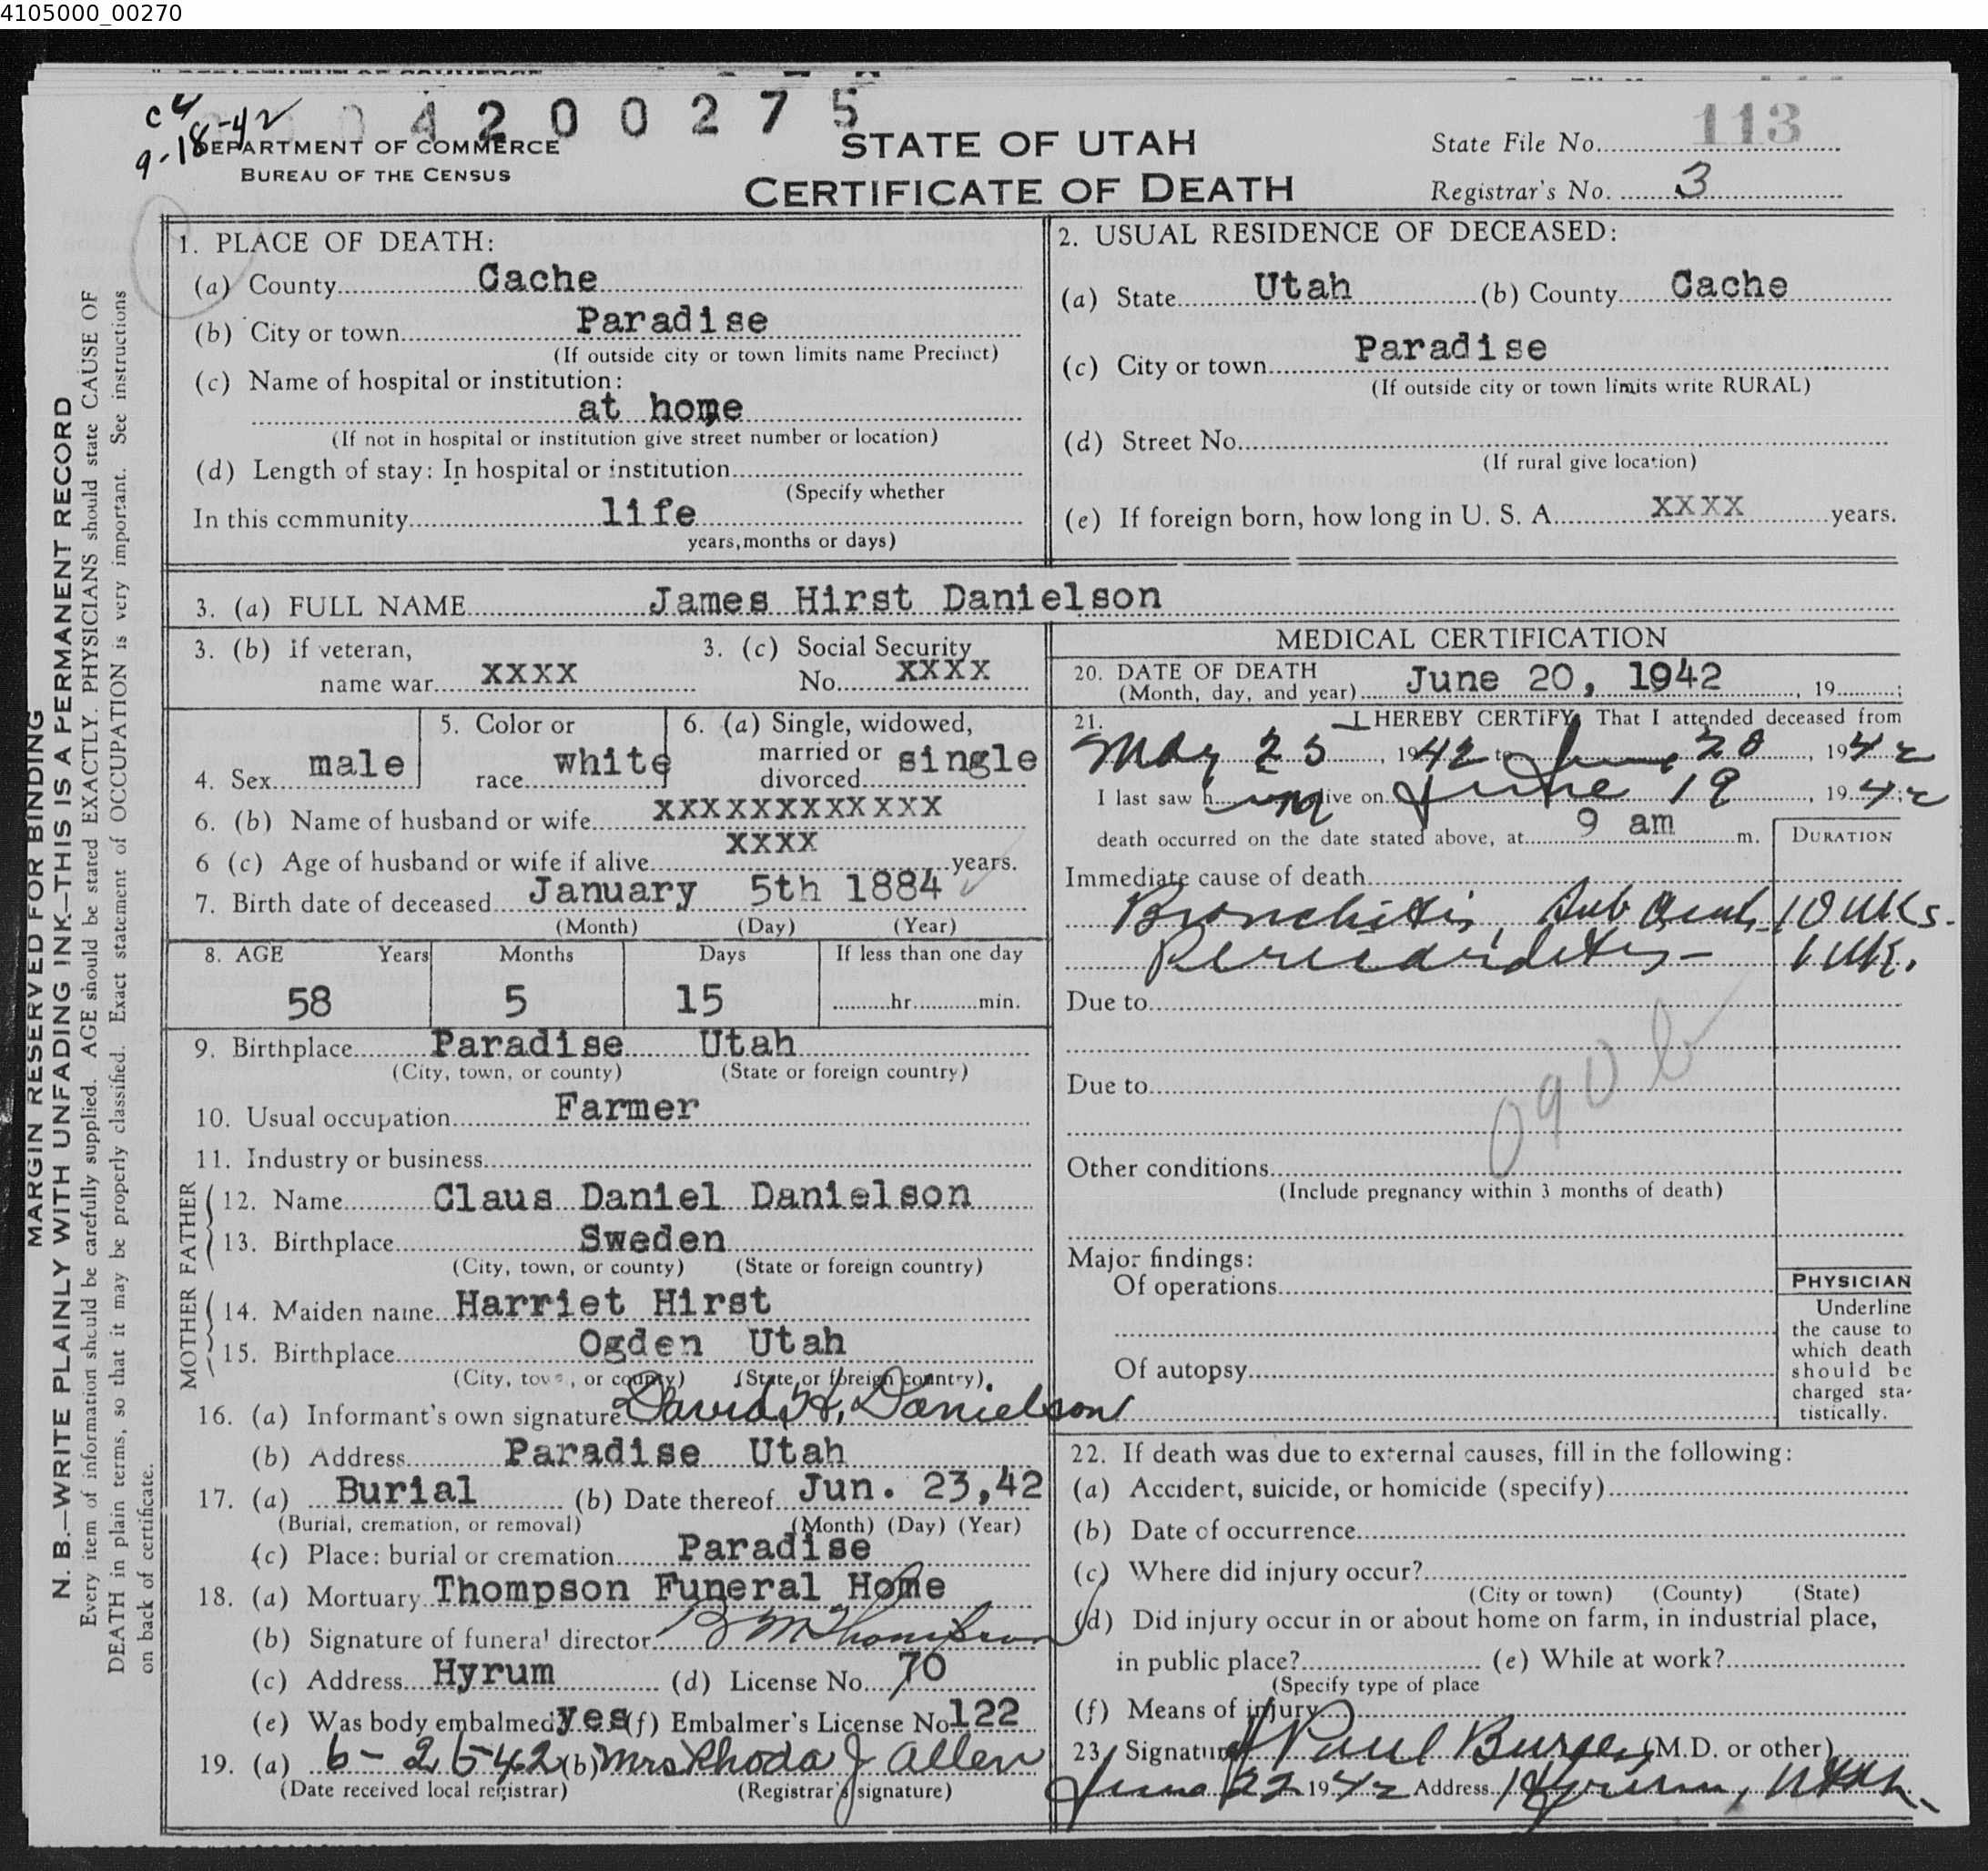 4105000_00270
c4
9-18-42
4 2 0 0 2 7 5
DEPARTMENT OF COMMERCE
BUREAU OF THE CENSUS
STATE OF UTAH
CERTIFICATE OF DEATH
State File No. 113
Registrar's No. 3
MARGIN RESERVED FOR BINDING
N. B.—WRITE PLAINLY WITH UNFADING INK—THIS IS A PERMANENT RECORD
Every item of information should be carefully supplied. AGE should be stated EXACTLY. PHYSICIANS should state CAUSE OF
DEATH in plain terms, so that it may be properly classified. Exact statement of OCCUPATION is very important. See instructions
on back of certificate.
1. PLACE OF DEATH:
(a) County Cache
(b) City or town Paradise
(If outside city or town limits name Precinct)
(c) Name of hospital or institution:
at home
(If not in hospital or institution give street number or location)
(d) Length of stay: In hospital or institution
(Specify whether
In this community life
years, months or days)
2. USUAL RESIDENCE OF DECEASED:
(a) State Utah (b) County Cache
(c) City or town Paradise
(If outside city or town limits write RURAL)
(d) Street No.
(If rural give location)
(e) If foreign born, how long in U. S. A. XXXX years.
3. (a) FULL NAME James Hirst Danielson
3. (b) if veteran, 3. (c) Social Security
name war XXXX No. XXXX
4. Sex male
5. Color or
race white
6. (a) Single, widowed,
married or
divorced single
6. (b) Name of husband or wife XXXXXXXXXXXX
6 (c) Age of husband or wife if alive XXXX years.
7. Birth date of deceased January 5th 1884
(Month) (Day) (Year)
8. AGE Years Months Days If less than one day
58 5 15 hr. min.
9. Birthplace Paradise Utah
(City, town, or county) (State or foreign country)
10. Usual occupation Farmer
11. Industry or business
FATHER
12. Name Claus Daniel Danielson
13. Birthplace Sweden
(City, town, or county) (State or foreign country)
MOTHER
14. Maiden name Harriet Hirst
15. Birthplace Ogden Utah
(City, town, or county) (State or foreign country)
16. (a) Informant's own signature David H. Danielson
(b) Address Paradise Utah
17. (a) Burial (b) Date thereof Jun. 23,42
(Burial, cremation, or removal) (Month) (Day) (Year)
(c) Place: burial or cremation Paradise
18. (a) Mortuary Thompson Funeral Home
(b) Signature of funeral director B M Thompson
(c) Address Hyrum (d) License No. 70
(e) Was body embalmed yes (f) Embalmer's License No. 122
19. (a) 6-25-42 (b) Mrs Rhoda J Allen
(Date received local registrar) (Registrar's signature)
MEDICAL CERTIFICATION
20. DATE OF DEATH
(Month, day, and year) June 20, 1942, 19 ;
21. I HEREBY CERTIFY, That I attended deceased from
May 25, 1942 to June 20, 1942
I last saw him alive on June 19, 1942;
death occurred on the date stated above, at 9 am m.
DURATION
Immediate cause of death
Bronchitis, Sub Acute 10 wks.
Pericarditis - 1 wk.
Due to
Due to
090 b
Other conditions
(Include pregnancy within 3 months of death)
Major findings:
Of operations
Of autopsy
PHYSICIAN
Underline
the cause to
which death
should be
charged sta-
tistically.
22. If death was due to external causes, fill in the following:
(a) Accident, suicide, or homicide (specify)
(b) Date of occurrence
(c) Where did injury occur?
(City or town) (County) (State)
(d) Did injury occur in or about home on farm, in industrial place,
in public place? (e) While at work?
(Specify type of place
(f) Means of injury
23. Signature J Paul Burgess (M.D. or other)
June 22 1942 Address Hyrum, Utah.